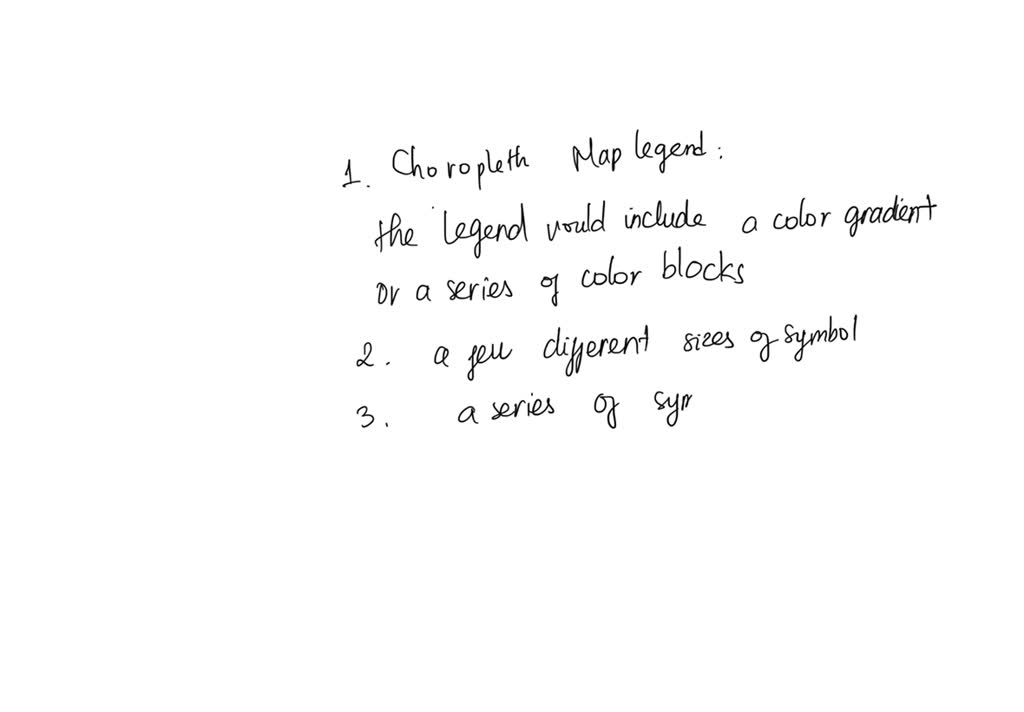 1. Choropleth Map legend:
the legend would include a color gradient
or a series of color blocks
2. a few different sizes of symbol
3. a series of sym